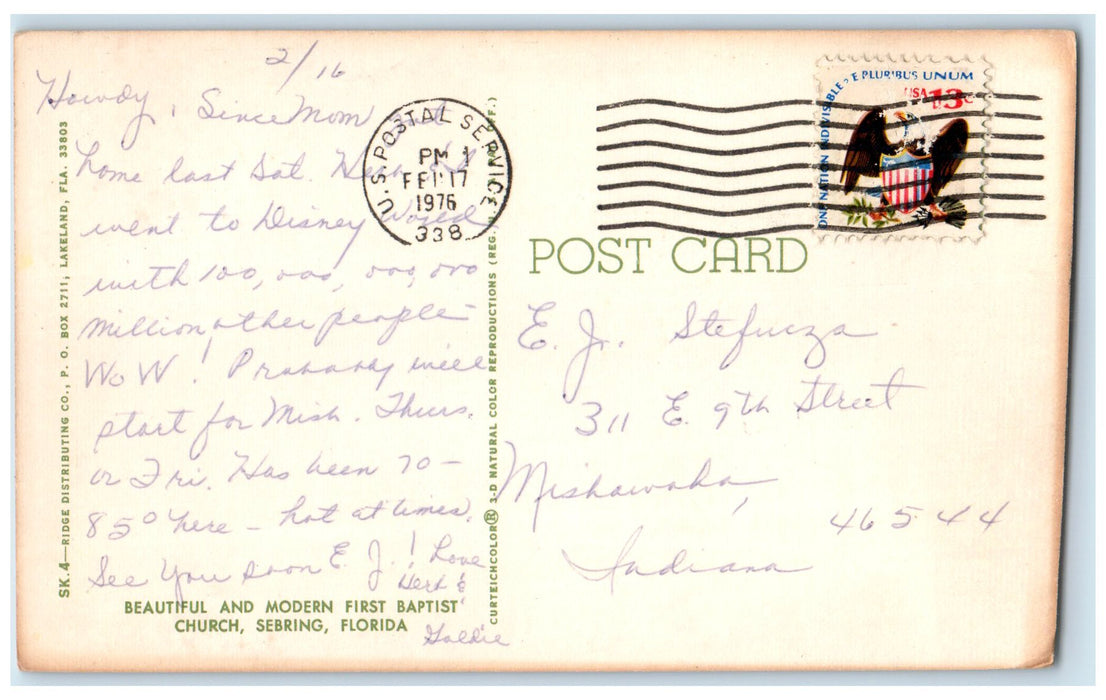 2/16
Howdy, Since Mom
home last Sat.
went to Disney World
with 100,000,000,000
million other people
WOW! Probably will
start for Mish. Thurs.
or Fri. Has been 70-
85° here - hot at times.
See You soon E. J.! Love
Herb &
Goldie
BEAUTIFUL AND MODERN FIRST BAPTIST
CHURCH, SEBRING, FLORIDA
SK.4—RIDGE DISTRIBUTING CO., P. O. BOX 2711, LAKELAND, FLA. 33803
CURTEICHCOLOR® 3-D NATURAL COLOR REPRODUCTIONS (REG. F.)
U.S. POSTAL SERVICE
PM
FEB 17
1976
338
ONE NATION INDIVISIBLE E PLURIBUS UNUM
USA 13c
POST CARD
E. J. Stefucza
311 E. 9th Street
Mishawaka,
46544
Indiana